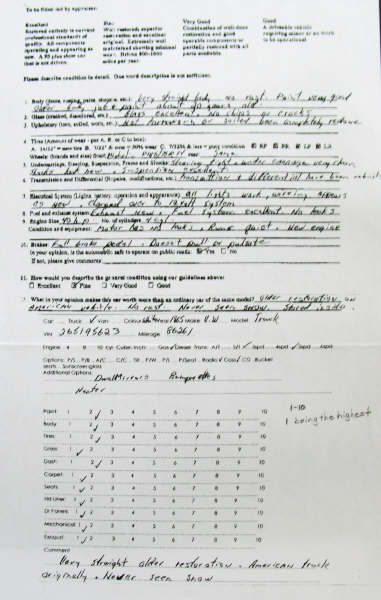 To be filled out by appraiser:
Excellent
Fine
Very Good
Good
Restored entirely to current
professional standards of
quality. All components
operating and appearing as
new. A 95 plus show car
that is not driven.
Well restored; superior
restoration and excellent
original. Extremely well
maintained showing minimal
wear. Driven 500-1000
miles per year
Combination of well-done
restoration and good
operable components or
partially restored with all
parts available.
A driveable vehicle
requiring minor or no work
to be operational.
Please describe condition in detail. One word description is not sufficient.
1. Body (dents, rusting, paint, stainless, etc.) Very straight body, no rust. Paint very good
about 20 years old
2. Glass (cracked, discolored, etc.) Glass excellent. No chips or cracks
3. Upholstery (torn, soiled, worn, etc.) Not torn or soiled been completely redone
4. Tires (Amount of wear - per A, B, or C below):
RF RR LF LR
Wheels (brands and size) front
5. Undercarriage, Steering, Suspension, Frame and Shocks under carriage very clean
Shocks but new. Suspension excellent
6. Transmission and Differential (Type, leaks, modifications, etc.) Transmission & differential have been rebuilt
7. Electrical System (Lights, battery, operation and appearance) all lights work, wiring appears
as new, changed over to 12 volt system
8. Fuel and exhaust system Exhaust New. Fuel system excellent No leaks
9. Engine Size No. of cylinders 4 cyl
Condition and equipment: Motor has no leaks. Runs quiet. New engine
10. Brakes Full brake pedal. Doesn't pull or pulsate
In your opinion, is the automobile safe to operate on public roads: Yes No
If not, please give comments
11. How would you describe the general condition using our guidelines above:
Excellent Fine Very Good Good
12. What in your opinion makes this car worth more than an ordinary car of the same model? Older restoration, an
American vehicle. No rust. Never seen snow. Stored inside.
Car Truck Van Colour White Year 1965 Make V.W Model Truck
VIN 265195623 Mileage 86261
Engine 4 6 8 10 cyl Cubic Inch Gas/Diesel Trans. A/T 3/4spd 5spd 6spd
Options: P/S P/B A/C C/C Tilt P/W P/L P/Seat Radio/Cass/CD Bucket
seats Sunroof
Additional Options:
Dual Mirrors
Heater
Paint: 1 2 3 4 5 6 7 8 9 10
1-10
Body: 1 2 3 4 5 6 7 8 9 10
1 being the highest
Tires: 1 2 3 4 5 6 7 8 9 10
Glass: 1 2 3 4 5 6 7 8 9 10
Dash: 1 2 3 4 5 6 7 8 9 10
Carpet: 1 2 3 4 5 6 7 8 9 10
Seats: 1 2 3 4 5 6 7 8 9 10
Hd Liner: 1 2 3 4 5 6 7 8 9 10
Dr Panels: 1 2 3 4 5 6 7 8 9 10
Mechanical: 1 2 3 4 5 6 7 8 9 10
Exhaust: 1 2 3 4 5 6 7 8 9 10
Comment
Very straight older restoration. American truck
originally. Never seen snow